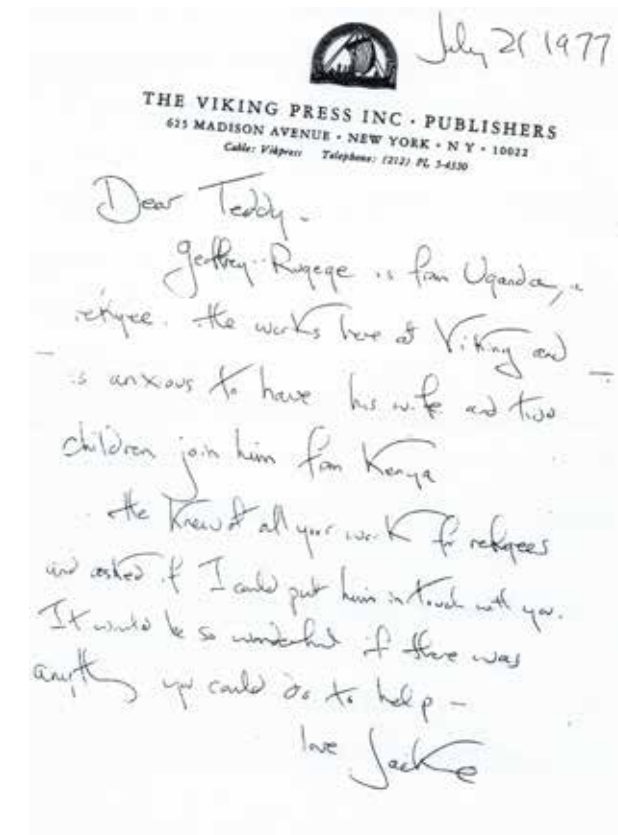 July 21 1977
THE VIKING PRESS INC · PUBLISHERS
625 MADISON AVENUE · NEW YORK · N Y · 10022
Cable: Vikpress Telephone: (212) PL 5-4330
Dear Teddy -
Geoffrey Rugege is from Uganda, a
refugee. He works here at Viking and
is anxious to have his wife and two
children join him from Kenya
He knew of all your work for refugees
and asked if I could put him in touch with you.
It would be so wonderful if there was
anything you could do to help -
love Jackie